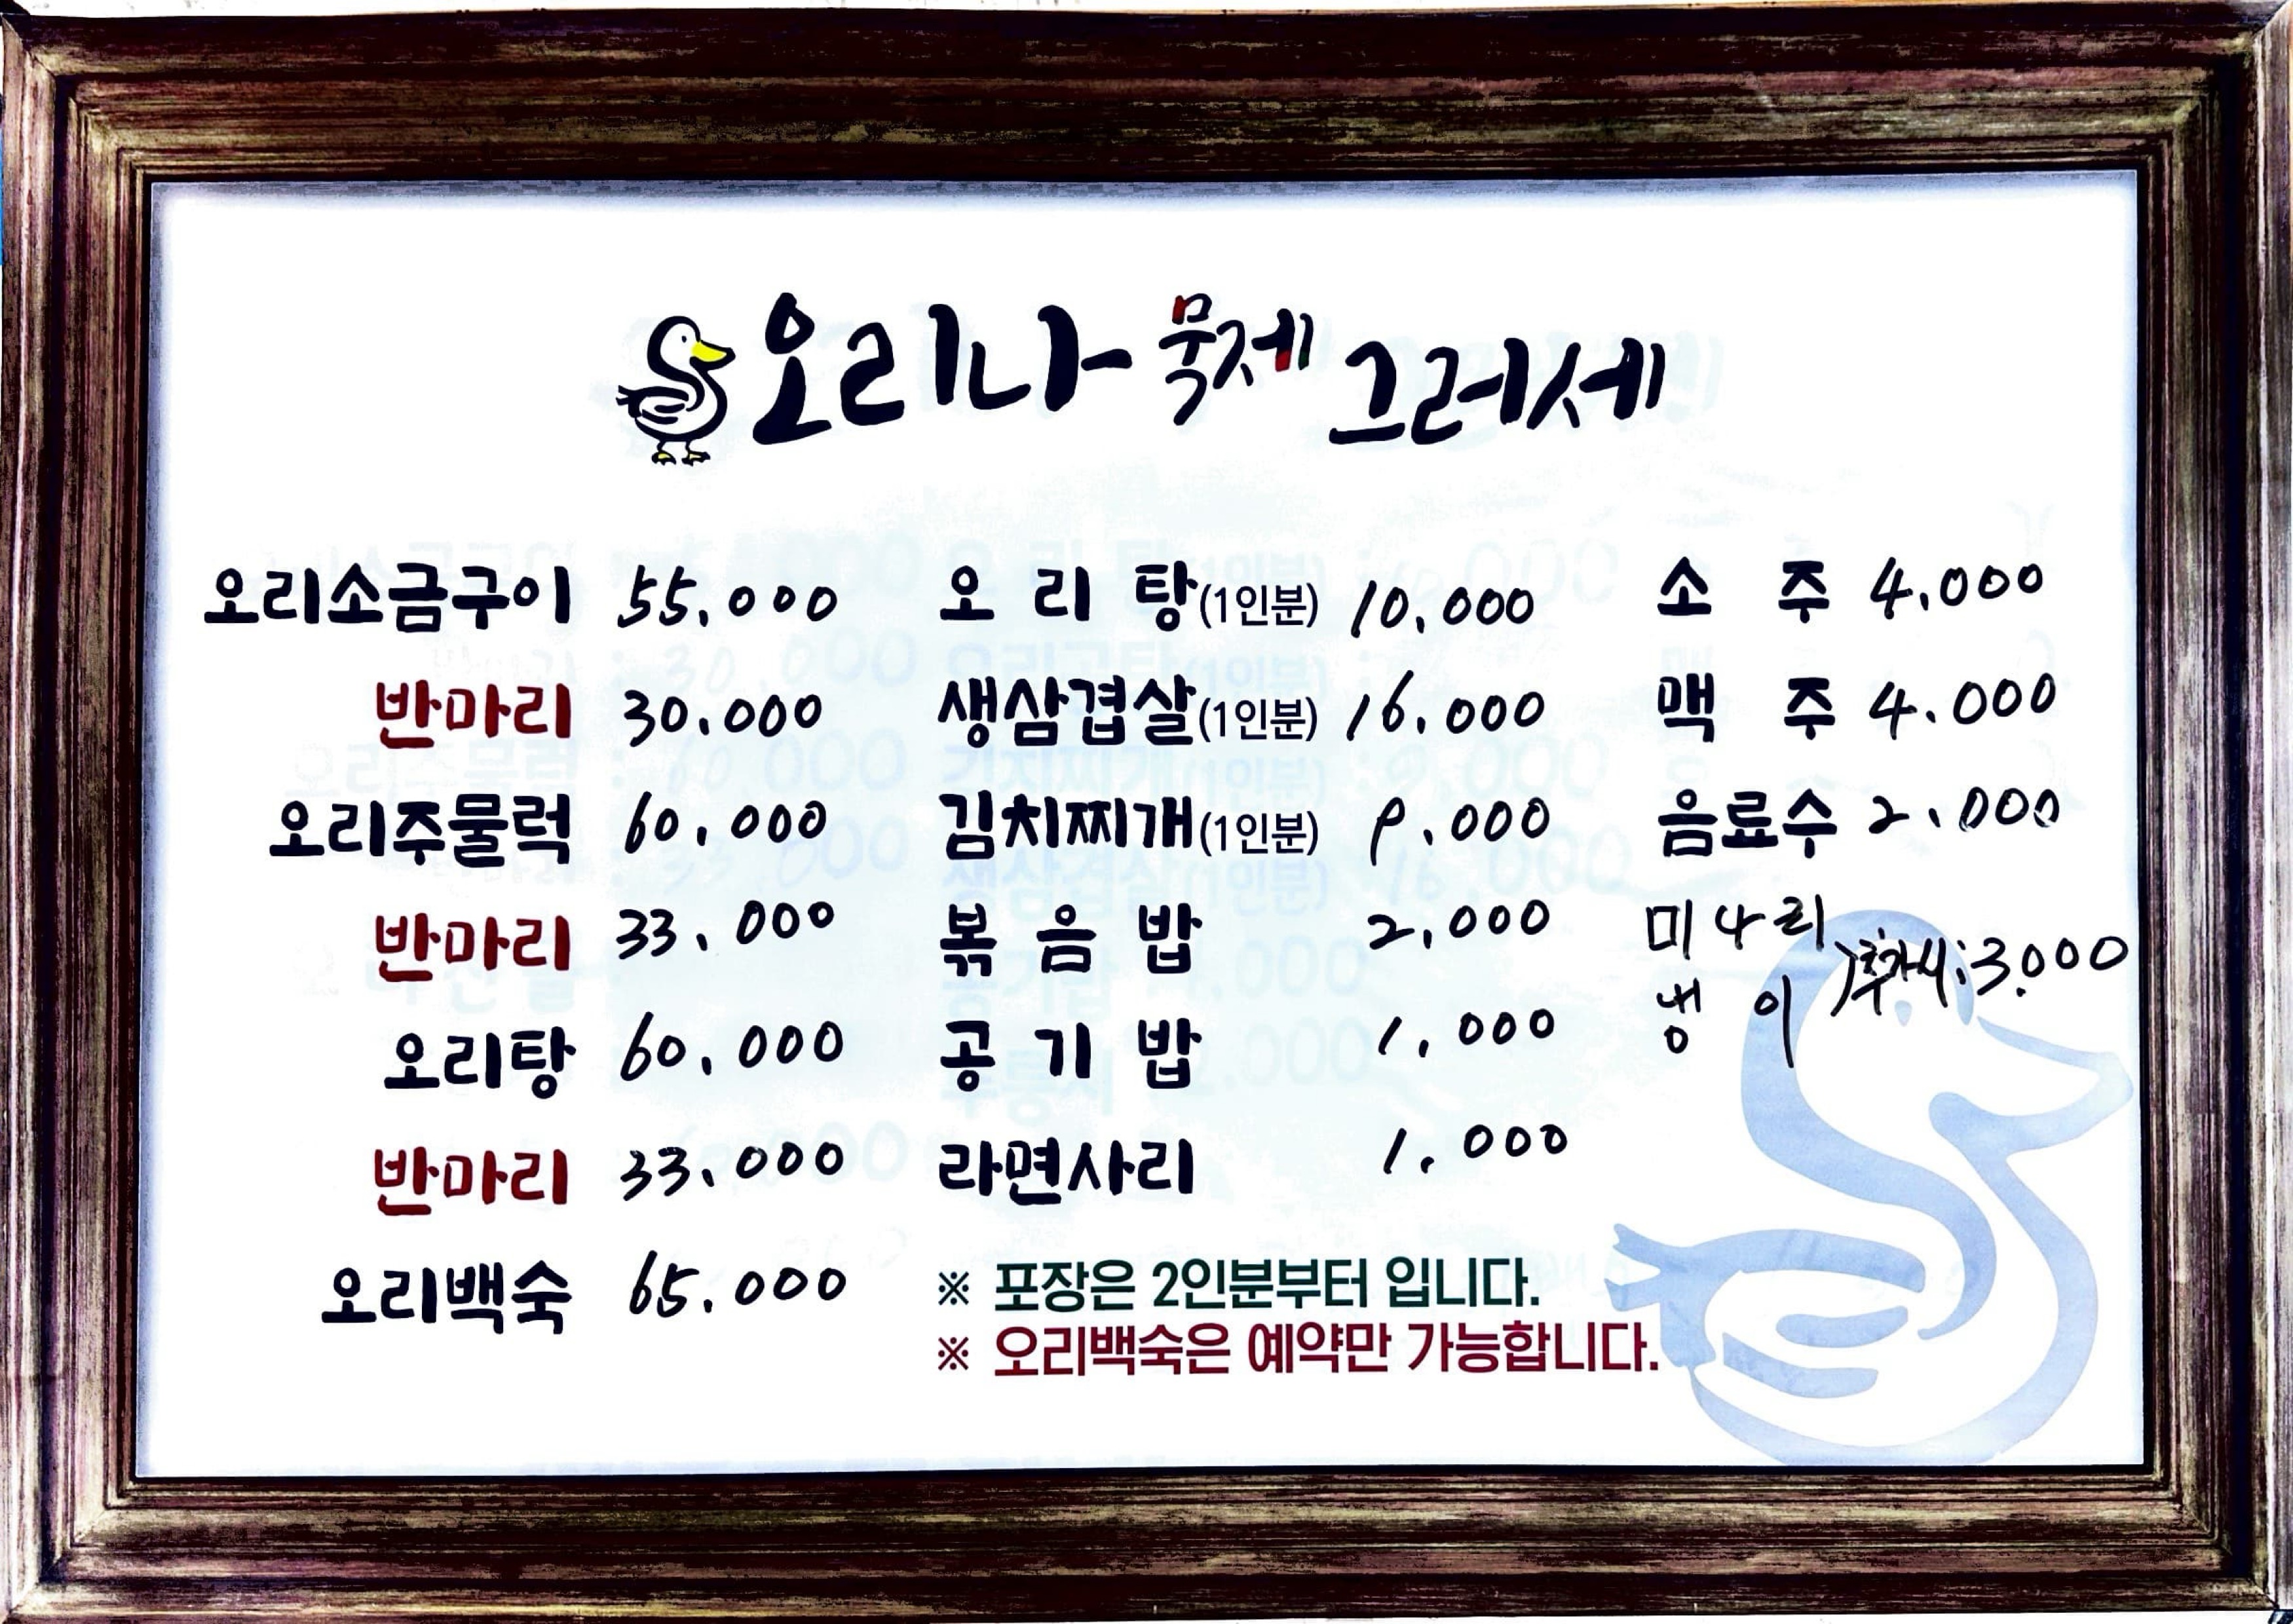 오리나 묵제 그러세
오리소금구이 55,000
반마리 30,000
오리주물럭 60,000
반마리 33,000
오리탕 60,000
반마리 33,000
오리백숙 65,000
오리탕(1인분) 10,000
생삼겹살(1인분) 16,000
김치찌개(1인분) 9,000
볶음밥 2,000
공기밥 1,000
라면사리 1,000
※ 포장은 2인분부터 입니다.
※ 오리백숙은 예약만 가능합니다.
소주 4,000
맥주 4,000
음료수 2,000
미나리
냉이
추가시: 3,000